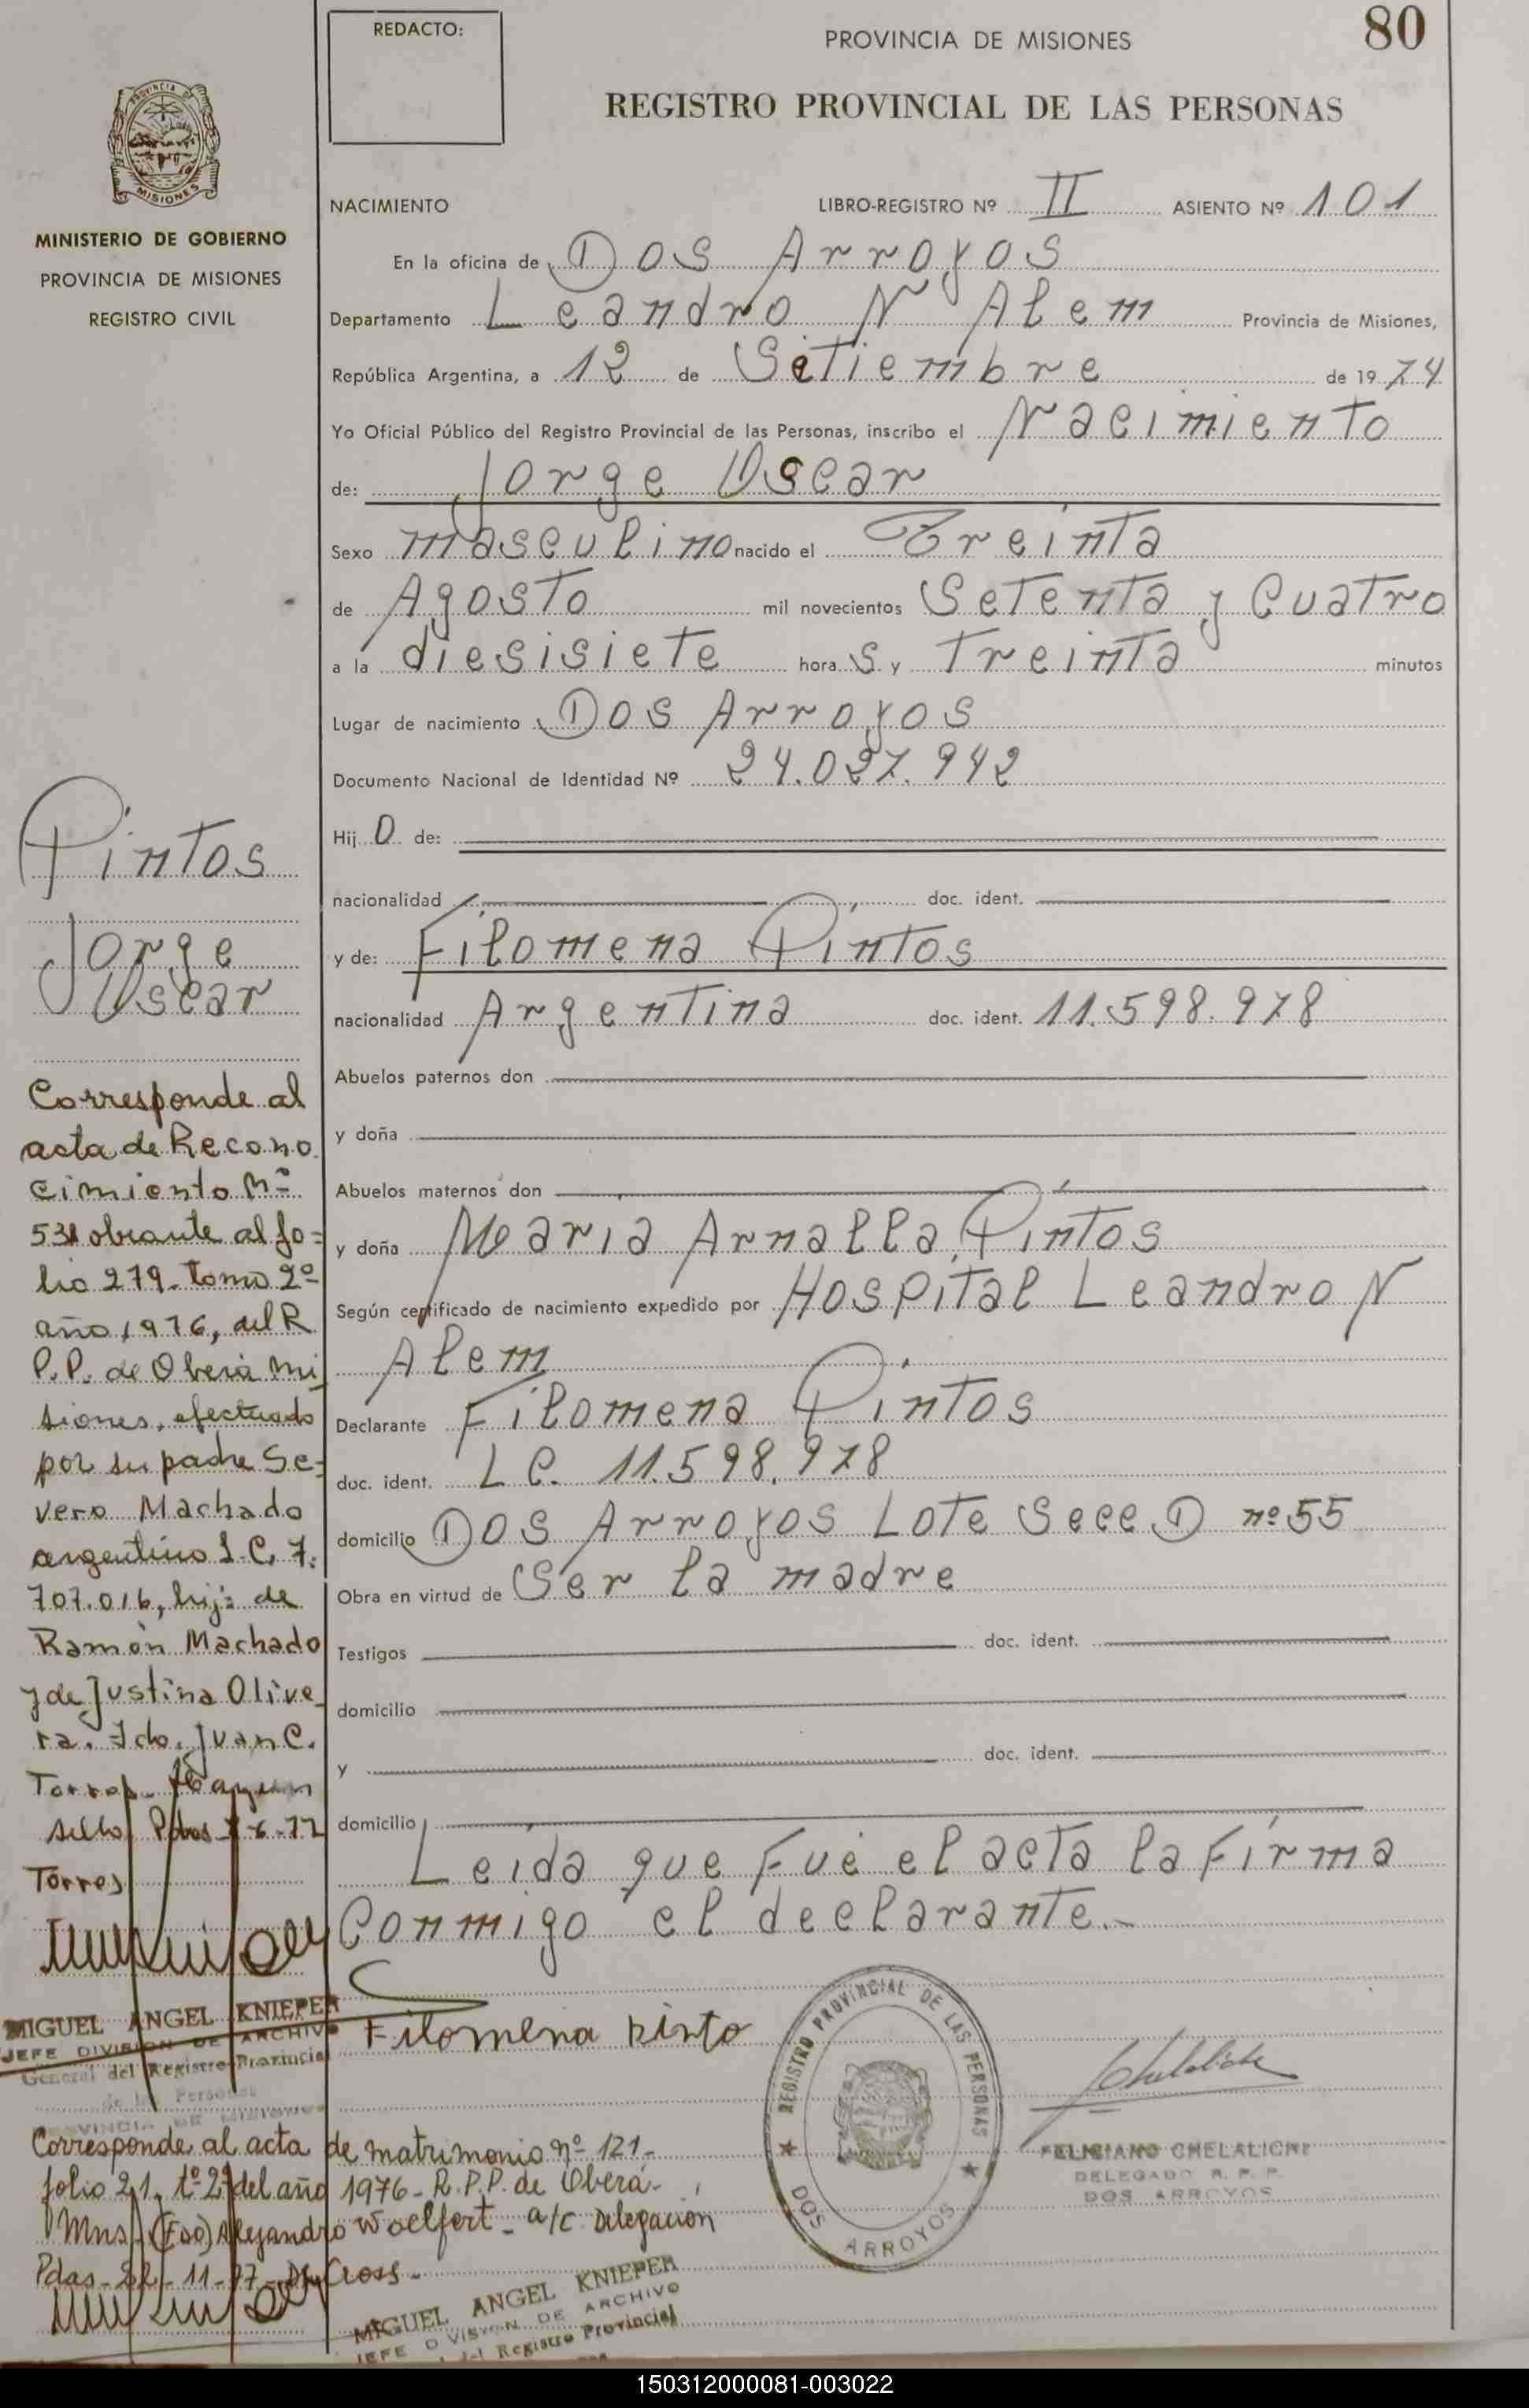 REDACTO:
PROVINCIA DE MISIONES
80
REGISTRO PROVINCIAL DE LAS PERSONAS
PROVINCIA DE
MISIONES
MINISTERIO DE GOBIERNO
PROVINCIA DE MISIONES
REGISTRO CIVIL
NACIMIENTO LIBRO-REGISTRO Nº II ASIENTO Nº 101
En la oficina de Dos Arroyos
Departamento Leandro N Alem Provincia de Misiones,
República Argentina, a 12 de Setiembre de 1974
Yo Oficial Público del Registro Provincial de las Personas, inscribo el Nacimiento
de: Jorge Oscar
Sexo masculino nacido el Treinta
de Agosto mil novecientos Setenta y Cuatro
a la diesisiete hora s y Treinta minutos
Lugar de nacimiento Dos Arroyos
Documento Nacional de Identidad Nº 24.027.942
Hij o de:
nacionalidad doc. ident.
y de: Filomena Pintos
nacionalidad Argentina doc. ident. 11.598.978
Abuelos paternos don
y doña
Abuelos maternos don
y doña Maria Arnalla Pintos
Según certificado de nacimiento expedido por Hospital Leandro N
Alem
Declarante Filomena Pintos
doc. ident. LC. 11.598.978
domicilio Dos Arroyos Lote Secc D nº 55
Obra en virtud de Ser la madre
Testigos doc. ident.
domicilio
y doc. ident.
domicilio
Leida que Fué el acta la Firma
Conmigo el declarante.-
Filomena Pinto
Pintos
Jorge
Oscar
Corresponde al
acta de Recono
cimiento Nº
531 obrante al fo=
lio 279- tomo 2º
año 1976, del R.
P.P. de Oberá Mi
siones, efectuado
por su padre Se=
vero Machado
argentino L.C. 7.
707.016, hijo de
Ramón Machado
y de Justina Olive
ra. Fdo. Juan C.
Torres. Hay un
sello Pdas 6-77
Torres
MIGUEL ANGEL KNIEPER
JEFE DIVISION DE ARCHIVO
General del Registro Provincial
de las Personas
PROVINCIA DE MISIONES
REGISTRO PROVINCIAL DE LAS PERSONAS
DOS ARROYOS
FELICIANO CHELALICHE
DELEGADO R. P. P.
DOS ARROYOS
Corresponde al acta de matrimonio nº 121-
folio 21, tº 2º del año 1976- R.P.P. de Oberá-
Mns. (Fdo) Alejandro Woelfert- a/c Delegación
Pdas- 22- 11- 77- Cross-
MIGUEL ANGEL KNIEPER
JEFE DIVISION DE ARCHIVO
del Registro Provincial
150312000081-003022